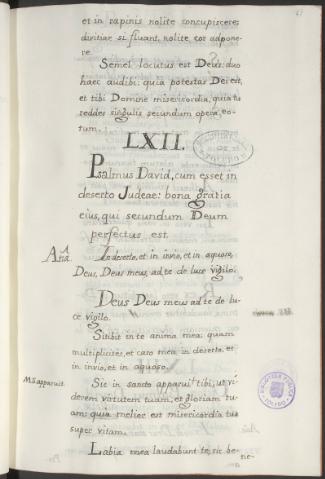 et in rapinis nolite concupiscere:
divitiae si fluant, nolite cor adpone-
re.
Semel locutus est Deus: duo
haec audibi: quia potestas Dei est,
et tibi Domine misericordia, quia tu
reddes singulis secundum opera eo-
rum.
LXII.
Psalmus David, cum esset in
deserto Judeae: bona gratia
eius, qui secundum Deum
perfectus est.
Añā. In deserto, et in invio, et in aquoso,
Deus, Deus meus, ad te de luce vigilo.
Deus Deus meus ad te de lu-
ce vigilo.
Sitibit in te anima mea: quam
multipliciter, et caro mea in deserto, et
in invio, et in aquoso.
Ms. apparuit. Sic in sancto apparui tibi, ut vi-
derem virtutem tuam, et gloriam tu-
am: quia melior est misericordia tua
super vitam.
Labia mea laudabunt te, sic be-
ne-